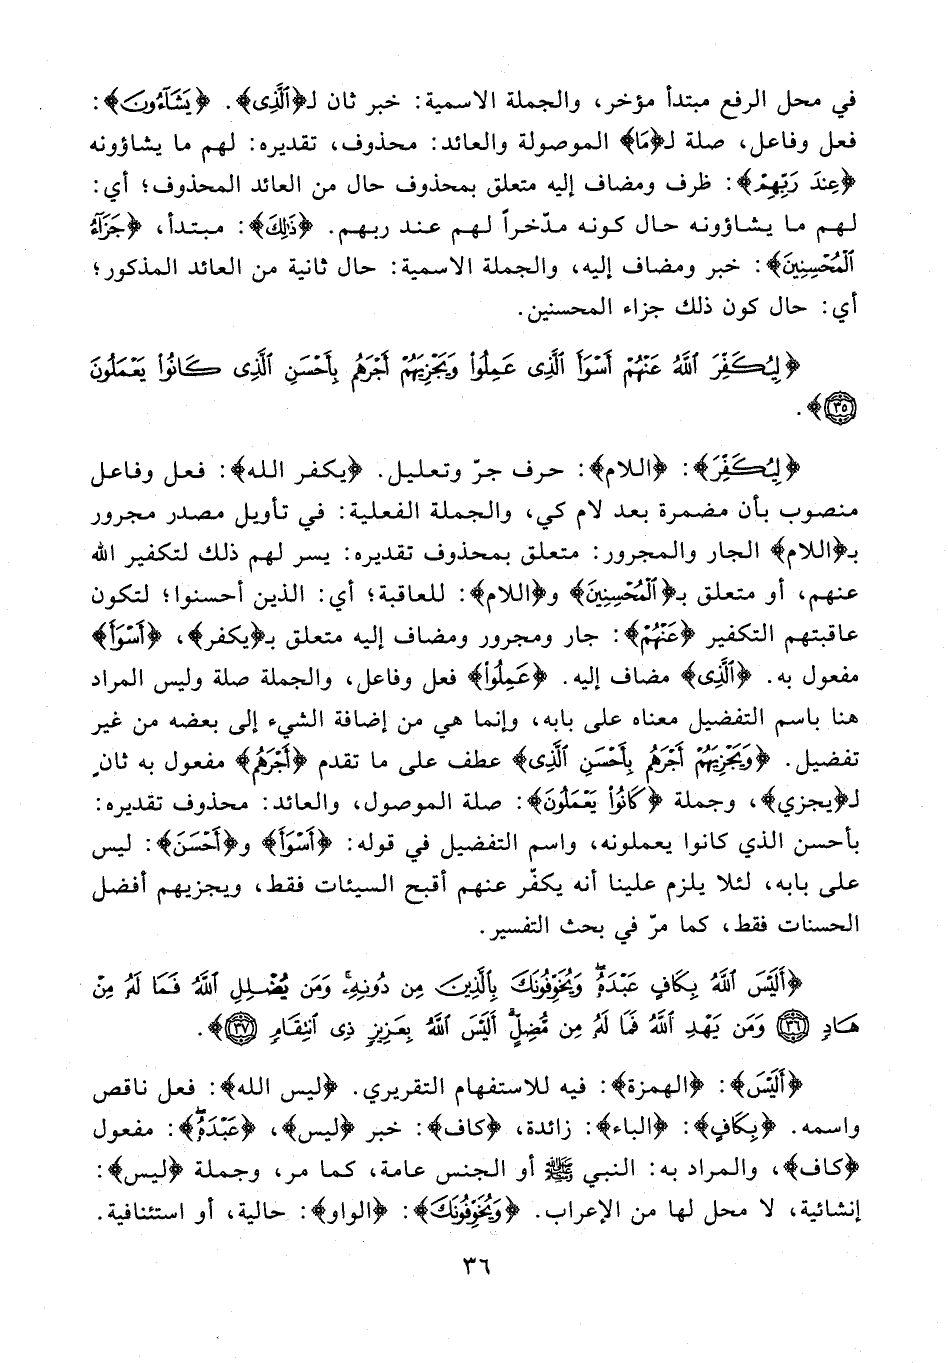 في محل الرفع مبتدأ مؤخر، والجملة الاسمية: خبر ثان لـ﴿ٱلَّذِى﴾. ﴿يَشَآءُونَ﴾:
فعل وفاعل، صلة لـ﴿مَا﴾ الموصولة والعائد: محذوف، تقديره: لهم ما يشاؤونه
﴿عِندَ رَبِّهِمْ﴾: ظرف ومضاف إليه متعلق بمحذوف حال من العائد المحذوف؛ أي:
لهم ما يشاؤونه حال كونه مدّخراً لهم عند ربهم. ﴿ذَٰلِكَ﴾: مبتدأ، ﴿جَزَآءُ
ٱلْمُحْسِنِينَ﴾: خبر ومضاف إليه، والجملة الاسمية: حال ثانية من العائد المذكور؛
أي: حال كون ذلك جزاء المحسنين.
﴿لِيُكَفِّرَ ٱللَّهُ عَنْهُمْ أَسْوَأَ ٱلَّذِى عَمِلُوا۟ وَيَجْزِيَهُمْ أَجْرَهُم بِأَحْسَنِ ٱلَّذِى كَانُوا۟ يَعْمَلُونَ
٣٥﴾.
﴿لِيُكَفِّرَ﴾: ﴿اللام﴾: حرف جرّ وتعليل. ﴿يكفر الله﴾: فعل وفاعل
منصوب بأن مضمرة بعد لام كي، والجملة الفعلية: في تأويل مصدر مجرور
بـ﴿اللام﴾ الجار والمجرور: متعلق بمحذوف تقديره: يسر لهم ذلك لتكفير الله
عنهم، أو متعلق بـ﴿ٱلْمُحْسِنِينَ﴾ و﴿اللام﴾: للعاقبة؛ أي: الذين أحسنوا؛ لتكون
عاقبتهم التكفير ﴿عَنْهُمْ﴾: جار ومجرور ومضاف إليه متعلق بـ﴿يكفر﴾، ﴿أَسْوَأَ﴾
مفعول به. ﴿ٱلَّذِى﴾ مضاف إليه. ﴿عَمِلُوا۟﴾ فعل وفاعل، والجملة صلة وليس المراد
هنا باسم التفضيل معناه على بابه، وإنما هي من إضافة الشيء إلى بعضه من غير
تفضيل. ﴿وَيَجْزِيَهُمْ أَجْرَهُم بِأَحْسَنِ ٱلَّذِى﴾ عطف على ما تقدم ﴿أَجْرَهُم﴾ مفعول به ثانٍ
لـ﴿يجزي﴾، وجملة ﴿كَانُوا۟ يَعْمَلُونَ﴾: صلة الموصول، والعائد: محذوف تقديره:
بأحسن الذي كانوا يعملونه، واسم التفضيل في قوله: ﴿أَسْوَأَ﴾ و﴿أَحْسَنَ﴾: ليس
على بابه، لئلا يلزم علينا أنه يكفّر عنهم أقبح السيئات فقط، ويجزيهم أفضل
الحسنات فقط، كما مرّ في بحث التفسير.
﴿أَلَيْسَ ٱللَّهُ بِكَافٍ عَبْدَهُۥ ۖ وَيُخَوِّفُونَكَ بِٱلَّذِينَ مِن دُونِهِۦ ۚ وَمَن يُضْلِلِ ٱللَّهُ فَمَا لَهُۥ مِنْ
هَادٍ ٣٦ وَمَن يَهْدِ ٱللَّهُ فَمَا لَهُۥ مِن مُّضِلٍّ ۗ أَلَيْسَ ٱللَّهُ بِعَزِيزٍ ذِى ٱنتِقَامٍ ٣٧﴾.
﴿أَلَيْسَ﴾: ﴿الهمزة﴾: فيه للاستفهام التقريري. ﴿ليس الله﴾: فعل ناقص
واسمه. ﴿بِكَافٍ﴾: ﴿الباء﴾: زائدة، ﴿كاف﴾: خبر ﴿ليس﴾، ﴿عَبْدَهُۥ ۖ﴾: مفعول
﴿كاف﴾، والمراد به: النبي ﷺ أو الجنس عامة، كما مر، وجملة ﴿ليس﴾:
إنشائية، لا محل لها من الإعراب. ﴿وَيُخَوِّفُونَكَ﴾: ﴿الواو﴾: حالية، أو استئنافية.
٣٦